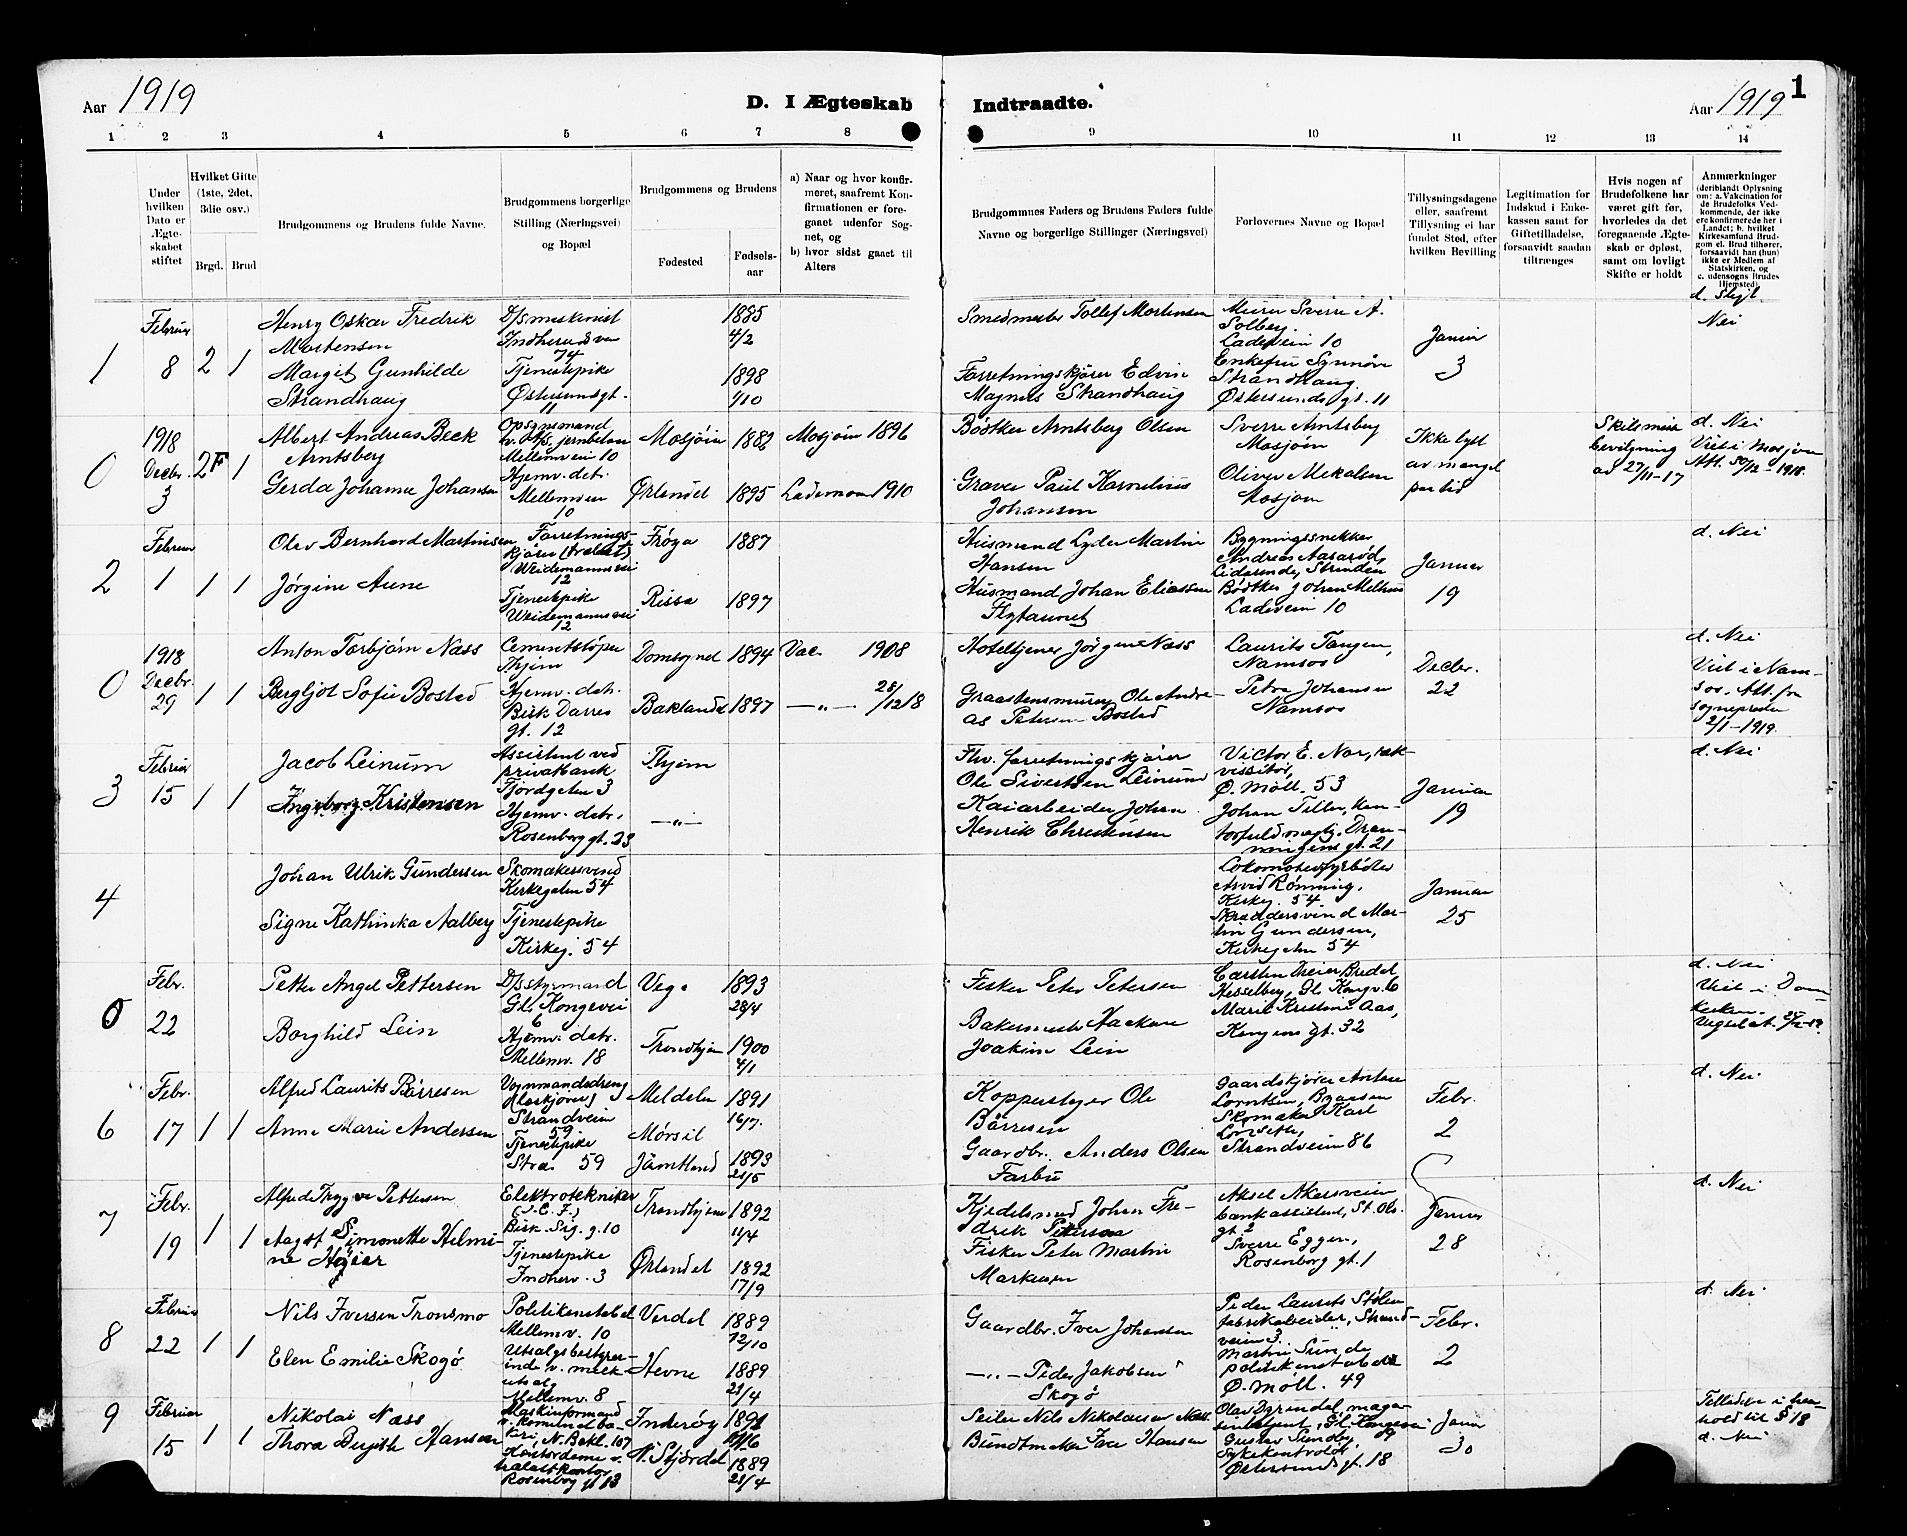 Aar 1919
D. I Ægteskab Indtraadte.
Aar 1919
1
1 2 3 4 5 6 7 8 9 10 11 12 13 14
Under hvilken Dato er Ægteskabet stiftet
Hvilket Gifte (1ste, 2det, 3die osv.)
Brgd. Brud
Brudgommens og Brudens fulde Navne.
Brudgommens borgerlige Stilling (Næringsvei) og Bopæl
Brudgommens og Brudens
Fødested
Fødselsaar
a) Naar og hvor konfirmeret, saafremt Konfirmationen er foregaaet udenfor Sognet, og
b) hvor sidst gaaet til Alters
Brudgommnes Faders og Brudens Faders fulde Navne og borgerlige Stillinger (Næringsvei)
Forlovernes Navne og Bopæl
Tillysningsdagene eller, saafremt Tillysning ei har fundet Sted, efter hvilken Bevilling
Legitimation for Indskud i Enkekassen samt for Giftetilladelse, forsaavidt saadan tiltrænges
Hvis nogen af Brudefolkene har været gift før, hvorledes da det foregaaende Ægteskab er opløst, samt om lovligt Skifte er holdt
Anmærkninger
(deriblandt Oplysning om: a. Vakcination for de Brudefolks Vedkommende, der ikke ere konfirmerede her i Landet; b. hvilket Kirkesamfund Brudgom el. Brud tilhører, forsaavidt han (hun) ikke er Medlem af Statskirken, og c. udensogns Brudes Hjemsted)
d. Slegt.
1 Februar 8 2 1
Henry Oskar Fredrik Mortensen
D/smaskinist Indherredsvei 74
1885 4/2
Smedmester Tollef Mortensen
Meier Sverre A. Solberg Ladeveien 10
Januar 3
Nei
Margit Gunhilde Strandhaug
Tjenestepike Østersundsgt. 11
1898 1/10
Forretningskjører Edvin Magnus Strandhaug
Enkefru Synnøve Strandhaug Østersundsgt. 11
0 1918 Decbr. 3 2F 1
Albert Andreas Beck Arntsberg
Opsynsmand Mellemveien 10
Mosjøin 1882 Mosjøin 1896
Bødtker Arntsberg Olsen
Sverre Arntsberg Mosjøen
Ikke lyst av mangel paa tid
Skilsmissebevilgning av 27/11-17
d. Nei
Viet i Mosjøen Att. 30/12-1918.
Gerda Johanne Johansen
Hjemv. datr. Mellemveien 10
Ørlandet 1895 Lademoen 1910
Graver Paul Kornelius Johansen
Oliver Mikalsen Mosjøen
2 Februar 1 1 1
Olav Bernhard Martinsen
Forretningskjører Weidemannsvei 12
Frøya 1887
Husmand Lyder Martin Hansen
Bygningssnekker Andreas Aasarød, Strinden
Januar 19
d. Nei
Jørgine Aune
Tjenestepike Weidemannsvei 12
Rissa 1897
Husmand Johan Eliassen
Bødtker Johan Melhus Ladeveien 10
0 1918 Decbr. 29 1 1
Anton Torbjørn Næss
Cementstøper Thjem
Domsognet 1894 Vac. 1908
Hoteltjener Jørgen Næss
Laurits Tangen, Namsos
Decbr. 22
d. Nei
Viet i Namsos. Att. fra Sognepresten 2/1-1919.
Bergljot Sofie Bostad
Hjemv. datr. Birk Darres gt. 12
Baklandet 1897 —"— 28/12 18
Graastensmurer Ole Andreas Petersen Bostad
Petra Johansen Namsos
3 Februar 15 1 1
Jacob Leinum
Assistent ved privatbank Fjordgaten 3
Thjem
Fhv. forretningskjører Ole Sivertsen Leinum
Victor E. Nor, Ø. Møll. 53
Januar 19
d. Nei
Ingeborg Kristensen
Hjemv. datr. Rosenborggt. 23
—"—
Kaiarbeider Johan Henrik Christensen
Johan Tiller, Dronningens gt. 21
4
Johan Ulrik Gundersen
Skomakersvend Kirkegaten 54
Lokomotivfyrbøter Arvid Rønning, Kirkeg. 54
Januar 25
Signe Kathinka Aalberg
Tjenestepike Kirkeg. 54
Skræddersvend Martin Gundersen, Kirkegaten 54
0 Febr. 22
Petter Angel Pettersen
D/sstyrmand Gl. Kongevei 6
Vega 1893 28/4
Fisker Peter Petersen
Hesselberg, Gl. Kongv. 6
d. Nei
Viet i Domkirken.
Borghild Lein
Hjemv. datr. Mellemv. 18
Trondhjem 1900 4/1
Bakermester Joakim Lein
Marie Kristine Aas, Kongens gt. 32
6 Febr. 17 1 1
Alfred Laurits Børresen
Vognmandsdreng Strandveien 59
Meldalen 1891 16/7.
Kopperslager Ole Børresen
Gaardskjører
Febr. 2
d. Nei
Anne Marie Andersen
Tjenestepike Stra. 59
Mørsil Jämtland 1893 21/5
Gaardbr. Anders Olsen Farbu
Skomaker Karl Strandveien 86
7 Febr. 19 1 1
Alfred Trygve Pettersen
Elektrotekniker Birk. Sig. g. 10
Trondhjem 1892 11/4
Kjedelsmed Johan Fredrik Petersen
Aksel Akersveien bankassistent, St. Ols. gt. 2
Januar 28
d. Nei
Aagot Simonette Helmine Høier
Tjenestepike Indherv. 3
Ørlandet 1892 17/9
Fisker Peter Martin
Sverre Eggen, Rosenborg gt. 1
8 Februar 22 1 1
Nils Iversen Tronsmo
Politikonstabel Mellemv. 10
Verdal 1889 12/10
Gaardbr. Iver Johansen
Peder Laurits Stølen fabrikarbeider, Strandveien 3.
Febr. 2
d. Nei
Elen Emilie Skogø
Utsalgsbestyrerinde v. melkeutsalg Mellemv. 8
Hevne 1889 23/4
—"— Peder Jakobsen Skogø
Martin Sunde politikonstabel Ø. Møll. 49
9 Februar 15 1 1
Nikolai Næss
Maskinformand N. Bakl. 107
Inderøy 1891
Seiler Nils Nikolaisen Næss.
Januar 30
§ 18
d. Nei
Thora Birgitte Hansen
Rosenborg gt 13
N. Stjørdal 1889 21/4
Bundtmaker Hansen
Gustav Sundby, Østersunds gt. 18